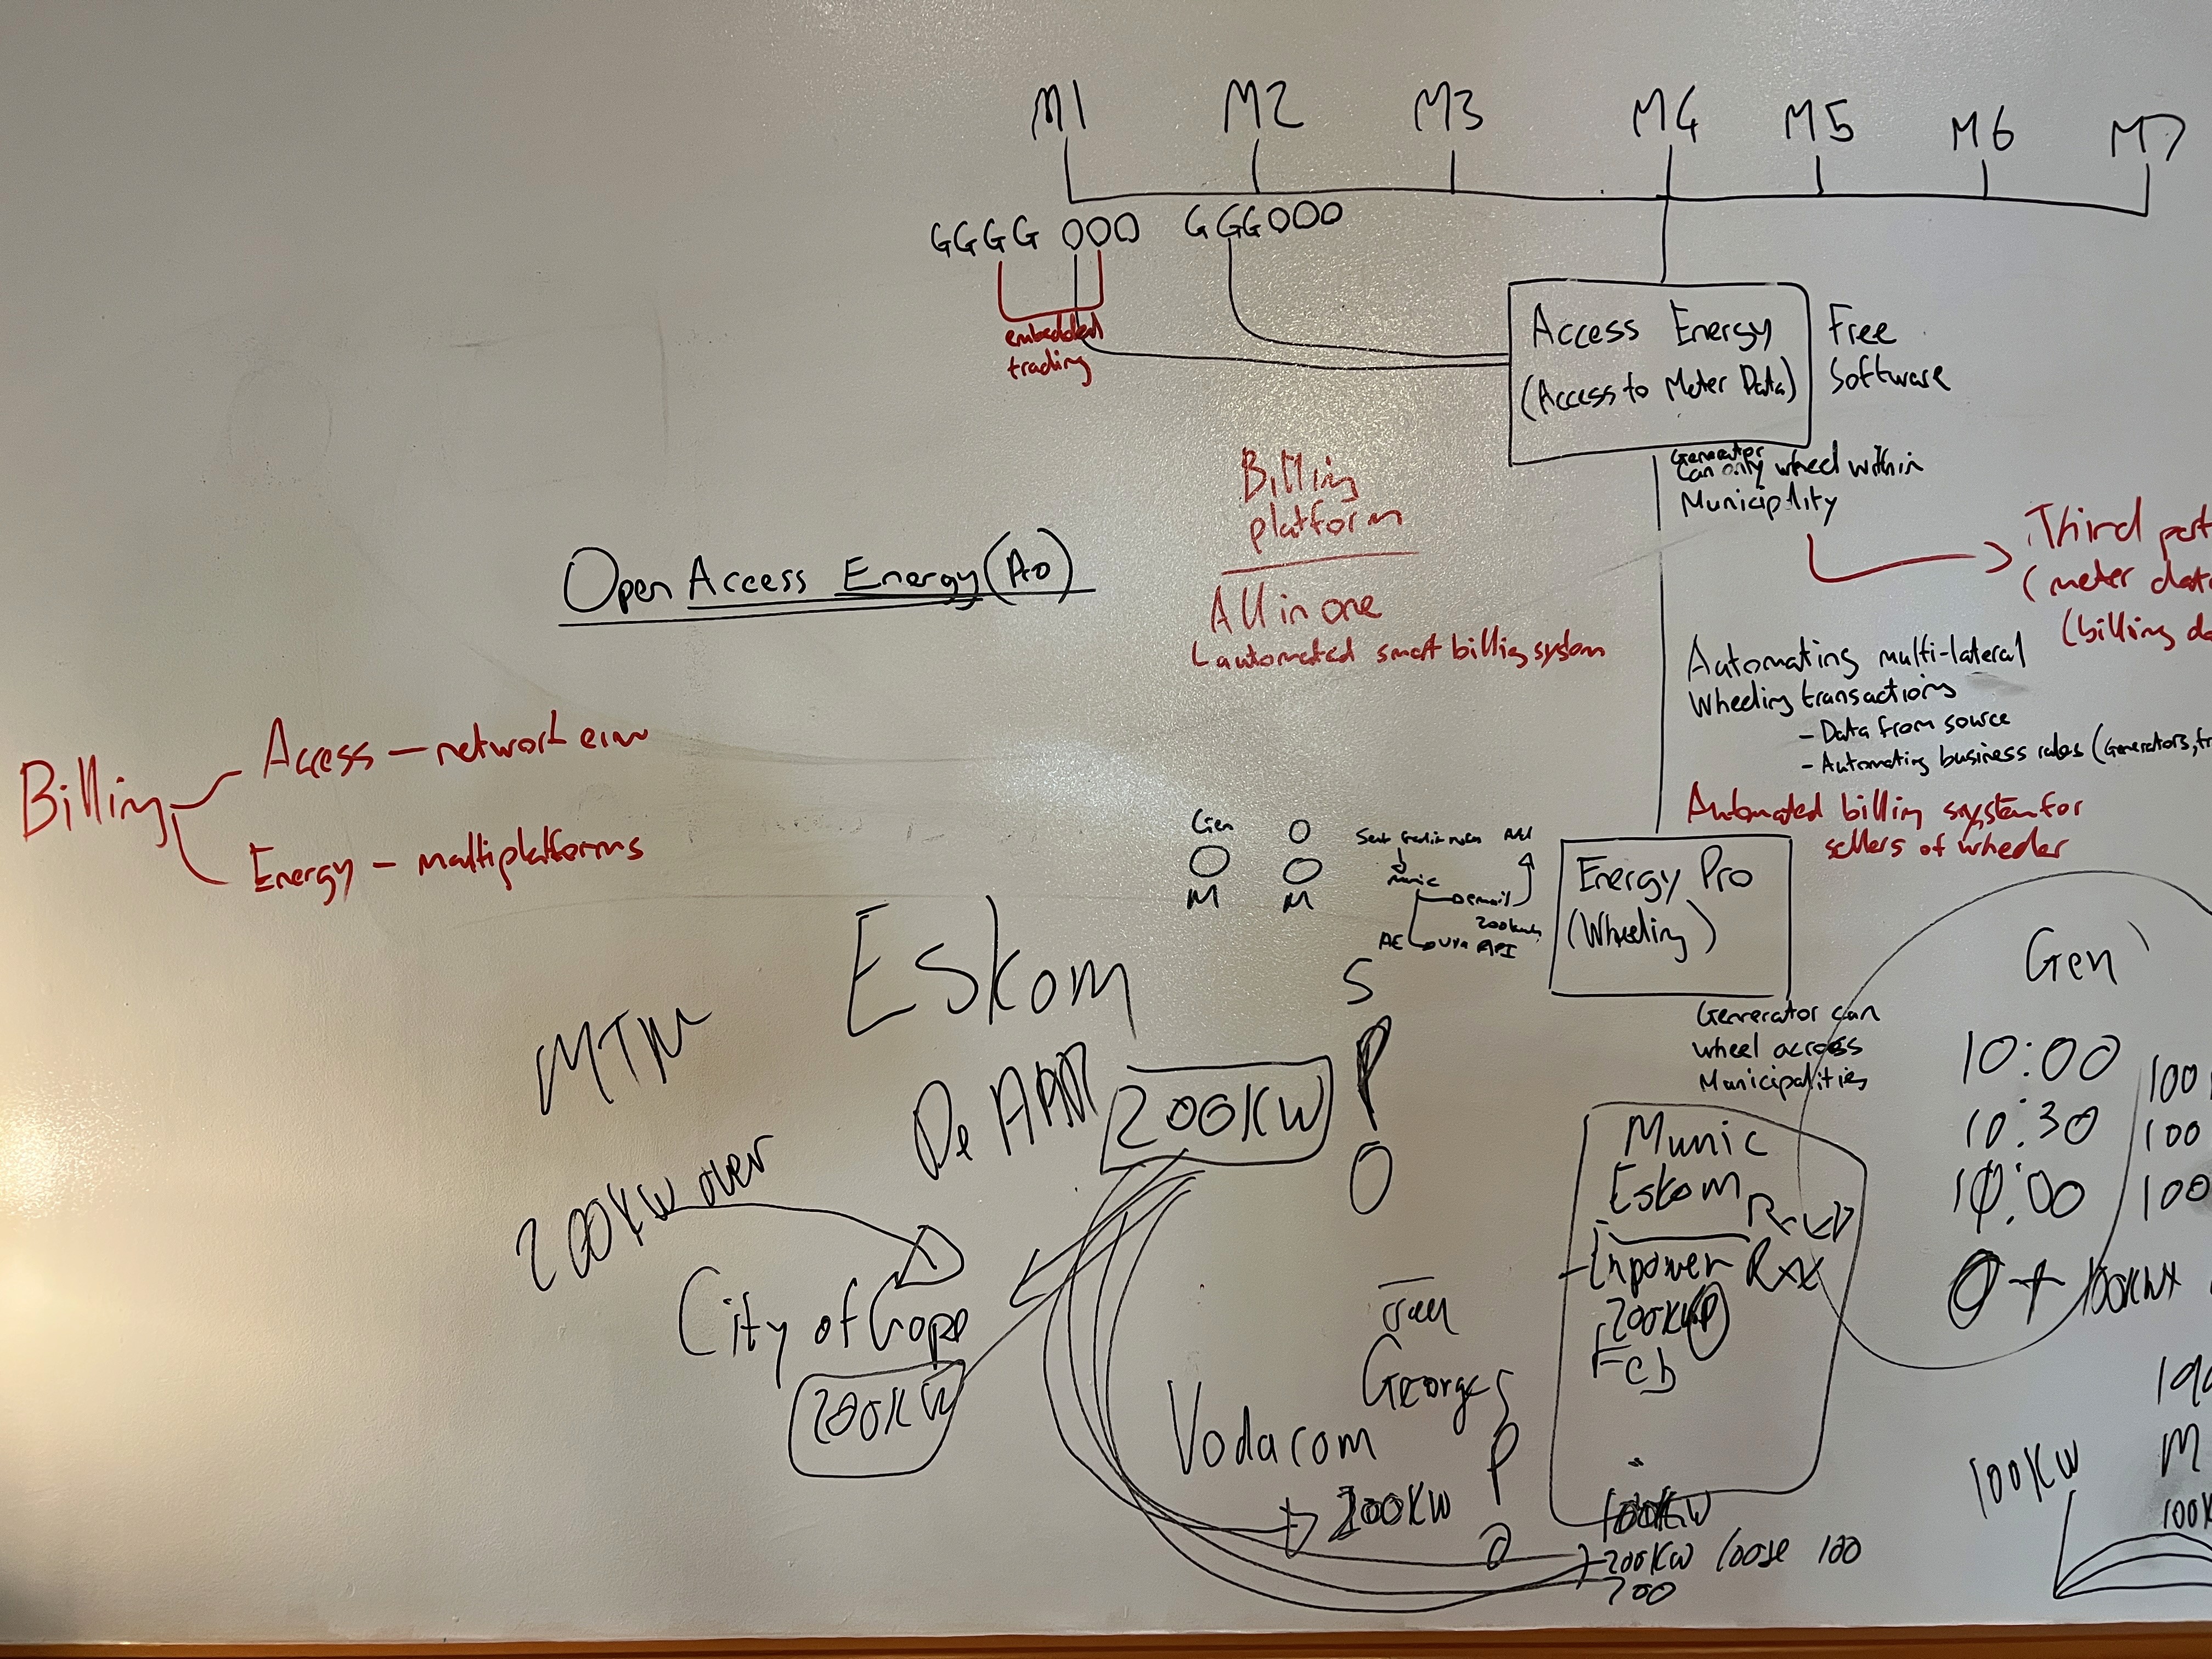 M1 M2 M3 M4 M5 M6 M7
GGGG OOO GGGOOO
embedded
trading
Access Energy
(Access to Meter Data)
Free
Software
Generator
Can only wheel within
Municiplity
Third part
(meter dat
(billing da
Billing
platform
All in one
automated smart billing system
Open Access Energy (AO)
Automating multi-lateral
Wheeling transactions
- Data from source
- Automating business rules (Generators, tr
Automated billing system for
sellers of wheeler
Billing
Access - network
Energy - multiplatforms
Gen O
M M
Munic
email
200kwh
AE via API
Energy Pro
(Wheeling)
Generator can
wheel across
Municipalities
Eskom
MTN
De AAR
200KW
S
P
O
200KW over
City of Cape
200KW
Vodacom
George
200KW
S
P
O
Munic
Eskom
Enpower Rxx
200KW
FCb
100KW
200KW loose 100
200
Gen
10:00 100
10:30 100
10:00 100
O + 100KWX
100KW
M
100K